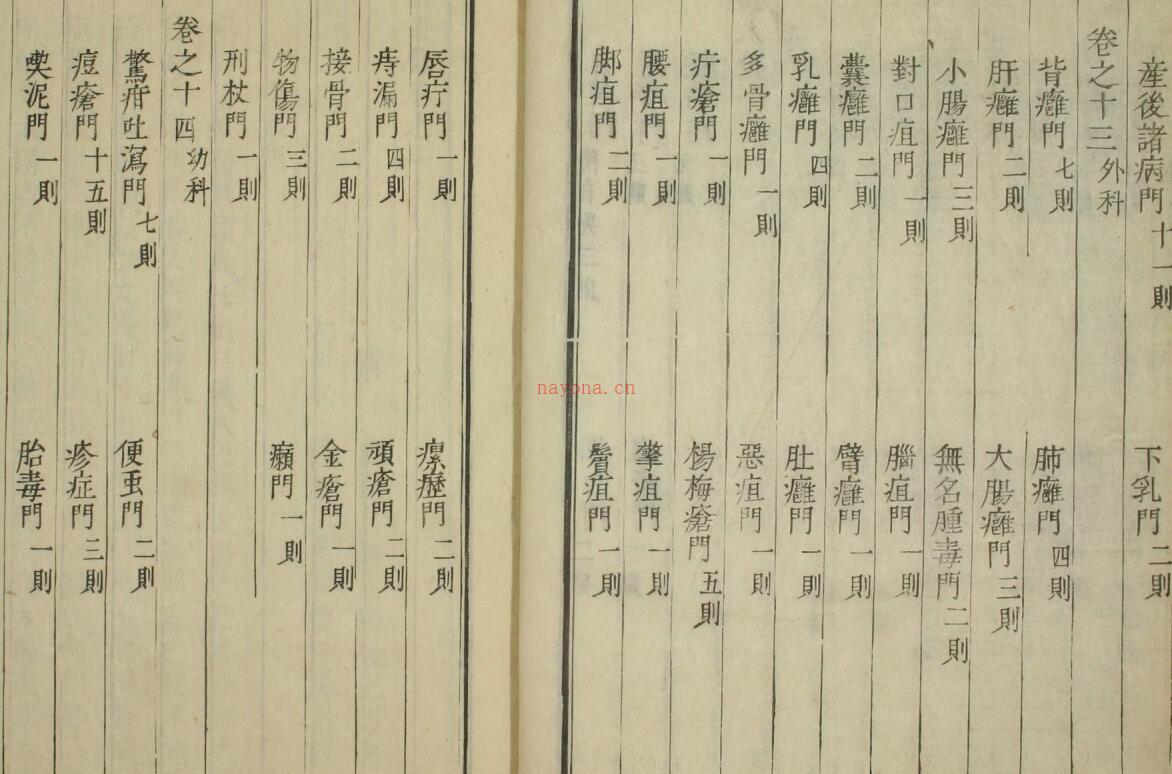 産後諸病門 十一則 下乳門 二則
卷之十三 外科
背癰門 七則 肺癰門 四則
肝癰門 二則 大腸癰門 三則
小腸癰門 三則 無名腫毒門 二則
對口疽門 一則 腦疽門 一則
囊癰門 二則 臂癰門 一則
乳癰門 四則 肚癰門 一則
多骨癰門 一則 惡疽門 一則
疔瘡門 一則 楊梅瘡門 五則
腰疽門 一則 擎疽門 一則
脚疽門 二則 鬢疽門 一則
唇疔門 一則 瘰癧門 二則
痔漏門 四則 頑瘡門 二則
接骨門 二則 金瘡門 一則
物傷門 三則 癩門 一則
刑杖門 一則
卷之十四 幼科
驚疳吐瀉門 七則 便虫門 二則
痘瘡門 十五則 疹症門 三則
喫泥門 一則 胎毒門 一則
nayona.cn